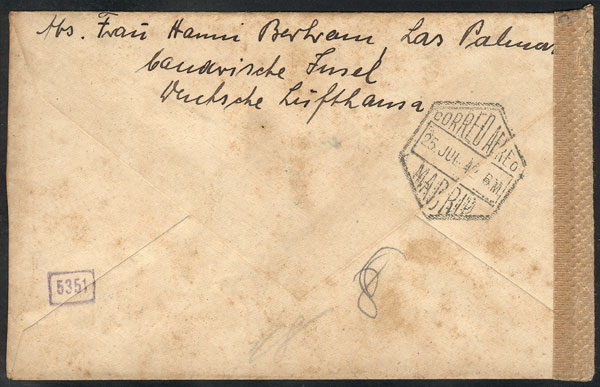 Abs. Frau Hanni Bertram, Las Palmas
Canarische Insel
Deutsche Lufthansa
CORREO AEREO
25 JUL 6M
MADRID
5351
8